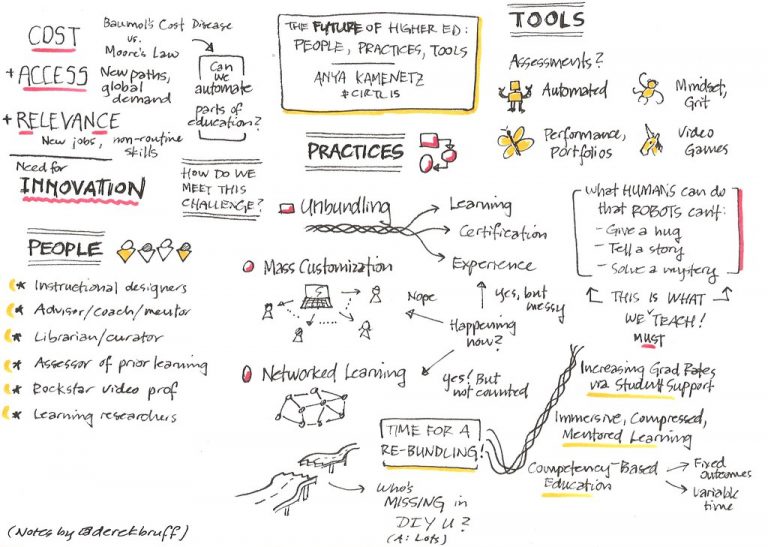 COST
Baumol's Cost Disease
vs.
Moore's Law
+ ACCESS
New paths,
global
demand
Can
we
automate
parts of
education?
+ RELEVANCE
New jobs, non-routine
skills
Need for
INNOVATION
HOW DO WE
MEET THIS
CHALLENGE?
THE FUTURE OF HIGHER ED:
PEOPLE, PRACTICES, TOOLS
ANYA KAMENETZ
#CIRTL15
TOOLS
Assessments?
Automated
Mindset,
Grit
Performance,
Portfolios
Video
Games
PEOPLE
* Instructional designers
* Advisor/coach/mentor
* Librarian/curator
* Assessor of prior learning
* Rockstar video prof
* Learning researchers
PRACTICES
Unbundling
Learning
Certification
Experience
Mass Customization
Nope
Yes, but
messy
Happening
now?
Networked Learning
Yes! But
not counted
What HUMANS can do
that ROBOTS can't:
- Give a hug
- Tell a story
- Solve a mystery
THIS IS WHAT
WE TEACH!
MUST
TIME FOR A
RE-BUNDLING!
Increasing Grad Rates
via Student Support
Immersive, Compressed,
Mentored Learning
Competency-Based
Education
Fixed
outcomes
Variable
time
Who's
MISSING in
DIY U?
(A: Lots)
(Notes by @derekbruff)